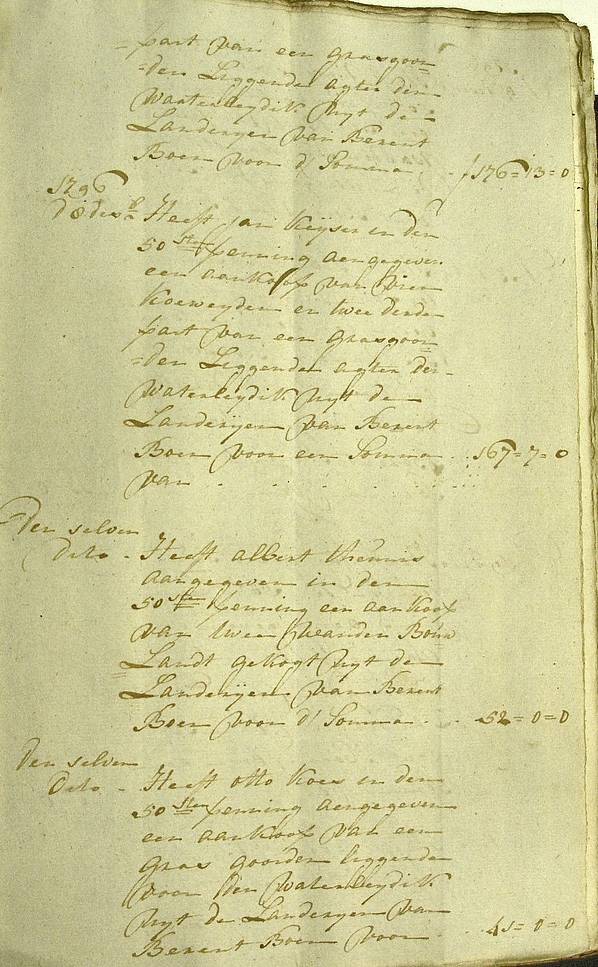 part van een grasgoor=
=den Liggende agter den
Waaterleydik uyt de
Landeryen van Berent
Boer voor d' Somma . . ƒ 176=13=0
1796
d 8 des Heeft jan Keyser in den
50 sten penning aengegeven
een aankoof van vier
Koeweyden en twee derde
part van een grasgoor=
=den Liggende agter den
Waterleydik uyt de
Landeryen van Berent
Boer voor een Somma . . 167=7=0
van . . . .
Den selven
Dato - Heeft albert
aangegeven in den
50 sten penning een aankoof
van twee Bouw
Landt gekogt uyt de
Landeryen van Berent
Boer voor d' Somma . . 52=0=0
Den selven
Dato - Heeft otto Koes in den
50 sten penning aengegeven
een aankoof van een
gras goorden liggende
voor den Waterleydik
uyt de Landeryen van
Berent Boer voor . . 45=0=0